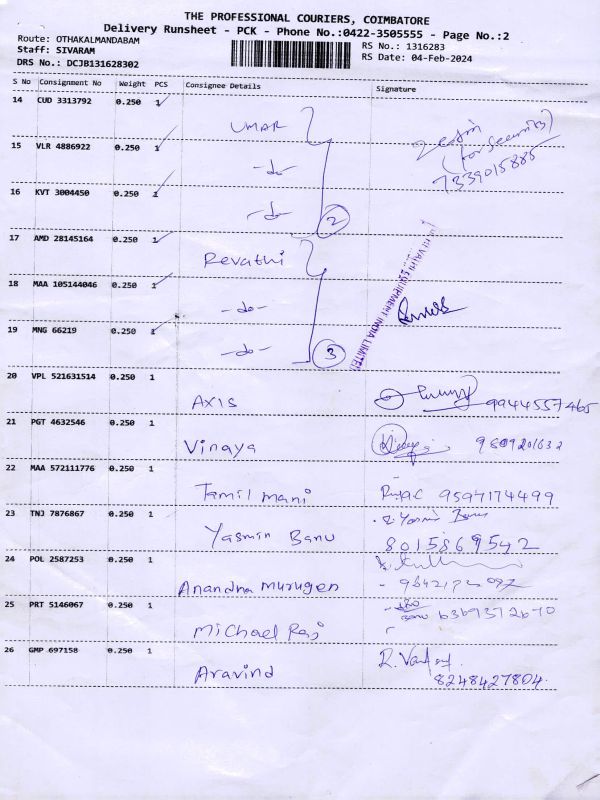 THE PROFESSIONAL COURIERS, COIMBATORE
Delivery Runsheet - PCK - Phone No.:0422-3505555 - Page No.:2
Route: OTHAKALMANDABAM
Staff: SIVARAM
DRS No.: DCJB131628302
RS No.: 1316283
RS Date: 04-Feb-2024
S No Consignment No Weight PCS Consignee Details Signature
14 CUD 3313792 0.250 1
UMAR
(for security)
7339015885
15 VLR 4886922 0.250 1
-do-
16 KVT 3004450 0.250 1
-do-
2
17 AMD 28145164 0.250 1
Revathi
18 MAA 105144046 0.250 1
-do-
EQUIPMENT INDIA LIMITED
19 MNG 66219 0.250 1
-do-
3
20 VPL 521631514 0.250 1
AXIS 9944557465
21 PGT 4632546 0.250 1
Vinaya
22 MAA 572111776 0.250 1
Tamil mani 9597174499
23 TNJ 7876867 0.250 1
Yasmin Banu
8015869542
24 POL 2587253 0.250 1
Anandha Murugen
25 PRT 5146067 0.250 1
Michael Raj
26 GMP 697158 0.250 1
Aravind
8248427804.